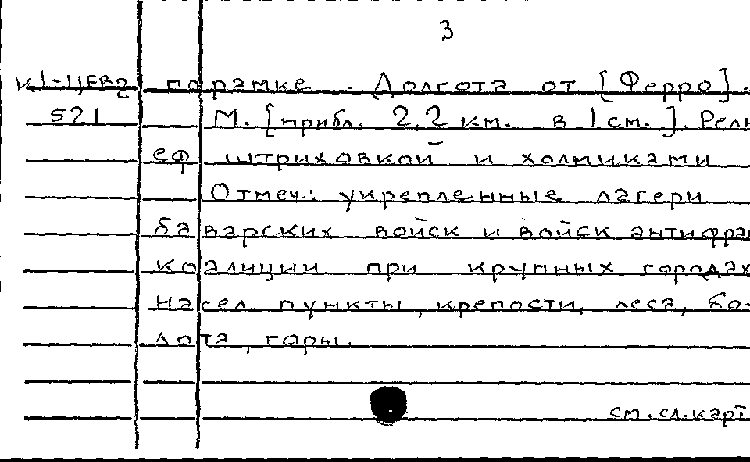 3
К1-Цев2 по рамке. Долгота от [Ферро].
521 М. [прибл. 2,2 км. в 1 см.]. Рель
еф штриховкой и холмиками
Отмеч.: укрепленные лагери
баварских войск и войск антифран
коалиции при крупных городах
насел. пункты, крепости, леса, бо-
лота, горы.
см.сл.карт